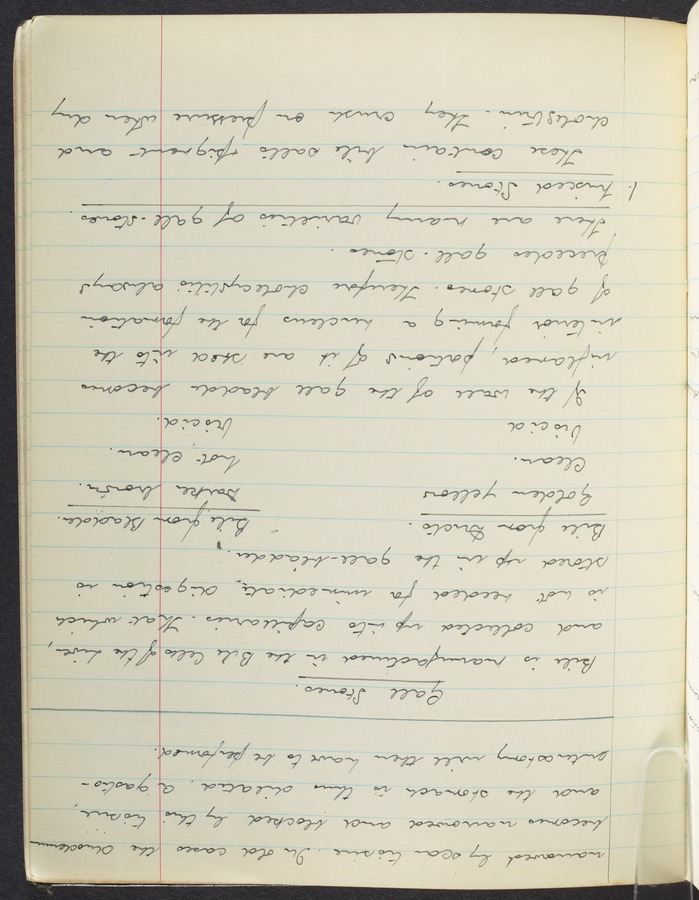 narrowed by scar tissue. In old cases the duodenum
becomes narrowed and blocked by this tissue,
and the stomach is thus dilated. A gastro-
enterostomy will then have to be performed.
Gall Stones.
Bile is manufactured in the Bile Cells of the liver,
and collected up into capillaries. That which
is not needed for immediate digestion is
stored up in the gall-bladder.
Bile from Ducts. Bile from Bladder.
Golden yellow Darker brown.
Clean. Not clean.
Viscid Viscid.
If the wall of the gall bladder becomes
inflamed, portions of it are shed into the
interior forming a nucleus for the formation
of gall stones. Therefore cholecystitis always
precedes gall-stones.
There are many varieties of gall-stones.
1. Inspced Stones.
These contain bile salts & pigment and
cholestrin. They crush on pressure when dry